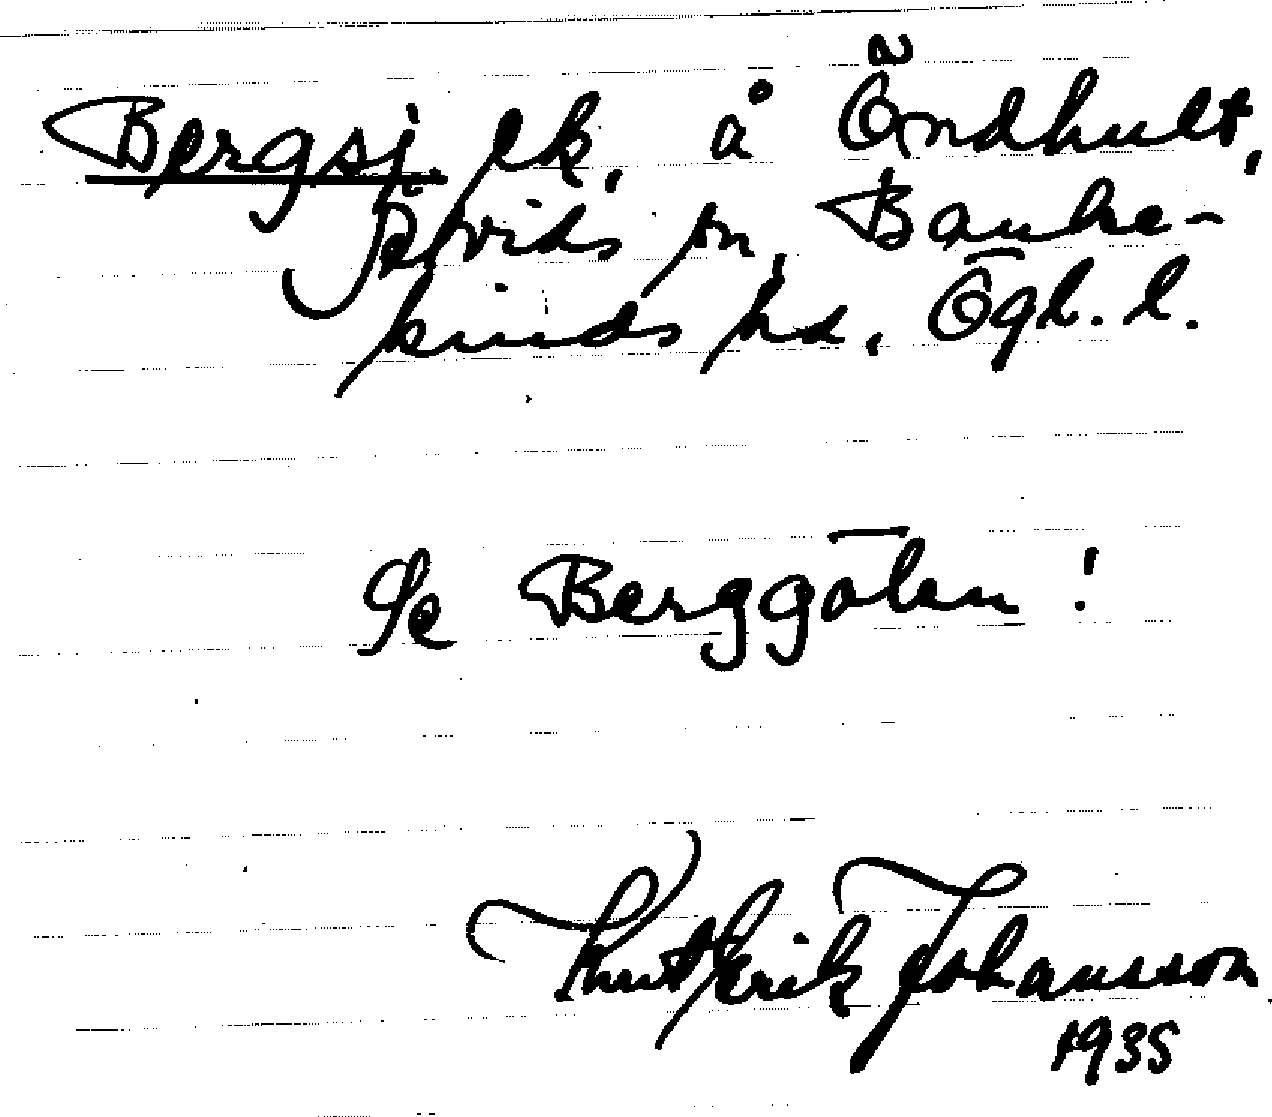 Bergsj. ek, å Öndhult,
Åtvids sn, Banke-
kinds hd, Ögl. l.
Se Berggölen!
Knut Erik Johansson
1935